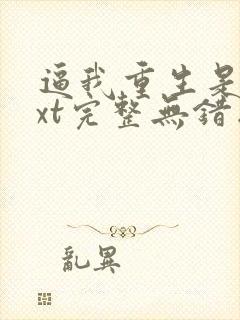 逼我重生是
xt完整無錯
亂異